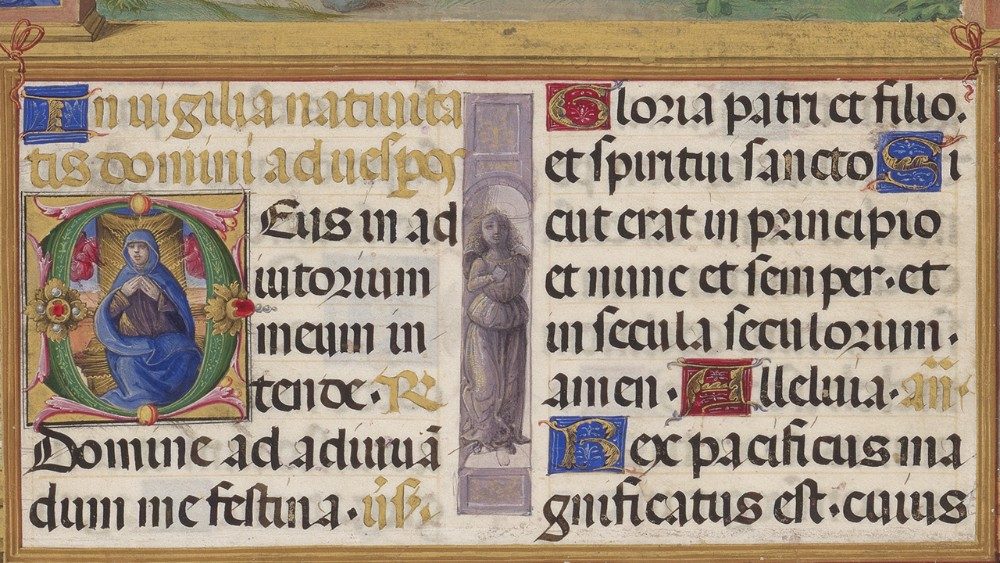 In vigilia nativita
tis domini ad vesp̲o̲ꝝ
Deus in ad
iutorium
meum in
tende · ℟
Domine ad adiuvā
dum me festina · v̄s̄ ·
Gloria patri et filio .
et spiritui sancto Si
cut erat in principio
et nunc et semper · et
in secula seculorum ·
amen · Alleluia · añ ·
Rex pacificus ma
gnificatus est · cuius